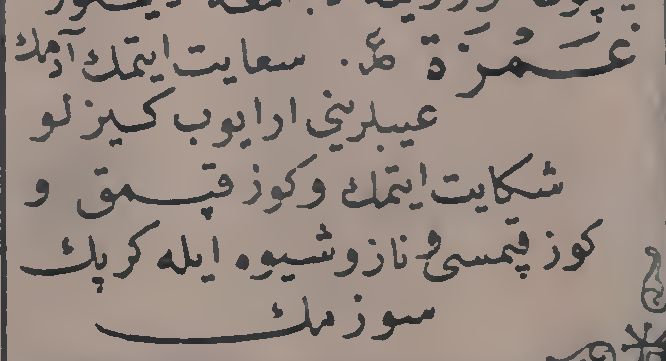 غَمْزَة ع. سعايت ايتمك آدمك
عيبلريني ارايوب كيزلو
شكايت ايتمك وكوز قپمق و
كوز قپمسى و ناز وشيوه ايله كرپك
سوزمك